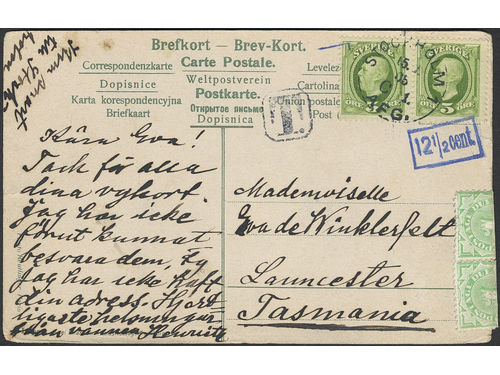 Brefkort – Brev-Kort.
Correspondenzkarte Carte Postale.
Dopisnice Weltpostverein
Karta korespondencyjna Postkarte.
Briefkaart Открытое письмо Union postale
Dopisnica Post
SVERIGE
SVERIGE
ÖRE
5 ÖRE
STOCKHOLM
15.
T
12 1/2 cent.
Kära Eva!
Tack för alla
dina vykort.
Jag har icke
förut kunnat
besvara dem, ty
jag har icke haft
din adress. Hjärt
ligaste helsningar
från vännen
Mademoiselle
Eva de Winklerfelt
Launcester
Tasmania